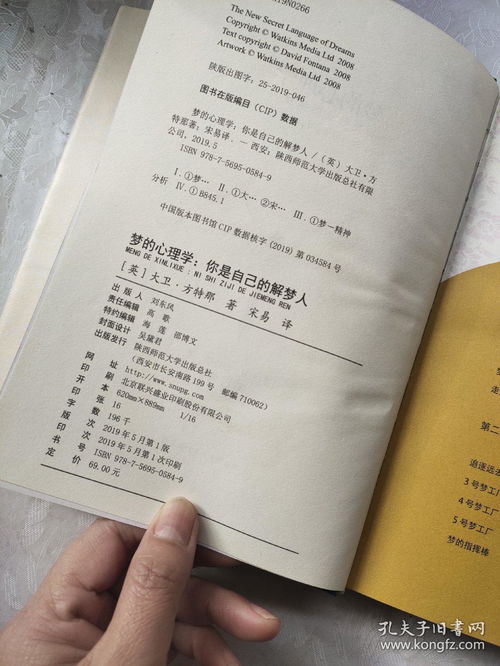 19N0266
The New Secret Language of Dreams
Copyright © Watkins Media Ltd 2008
Text copyright © David Fontana 2008
Artwork © Watkins Media Ltd 2008
陕版出图字：25-2019-046
图书在版编目（CIP）数据
梦的心理学：你是自己的解梦人 /（英）大卫·方
特那著；宋易译. — 西安：陕西师范大学出版总社有限
公司, 2019.5
ISBN 978-7-5695-0584-9
Ⅰ. ①梦… Ⅱ. ①大… ②宋… Ⅲ. ①梦－精神
分析 Ⅳ. ①B845.1
中国版本图书馆 CIP 数据核字 (2019) 第 034584 号
梦的心理学：你是自己的解梦人
MENG DE XINLIXUE : NI SHI ZIJI DE JIEMENG REN
[英] 大卫·方特那 著 宋易 译
出 版 人 刘东风
责任编辑 高歌
特约编辑 海莲 邵博文
封面设计 吴黛君
出版发行 陕西师范大学出版总社
（西安市长安南路 199 号 邮编 710062）
网 址 http://www.snupg.com
印 刷 北京联兴盛业印刷股份有限公司
开 本 620mm×889mm 1/16
印 张 16
字 数 196 千
版 次 2019 年 5 月第 1 版
印 次 2019 年 5 月第 1 次印刷
书 号 ISBN 978-7-5695-0584-9
定 价 69.00 元
第二
追逐远
3 号梦工厂
4 号梦工厂
5 号梦工厂
梦的指挥棒
孔夫子旧书网
www.kongfz.com